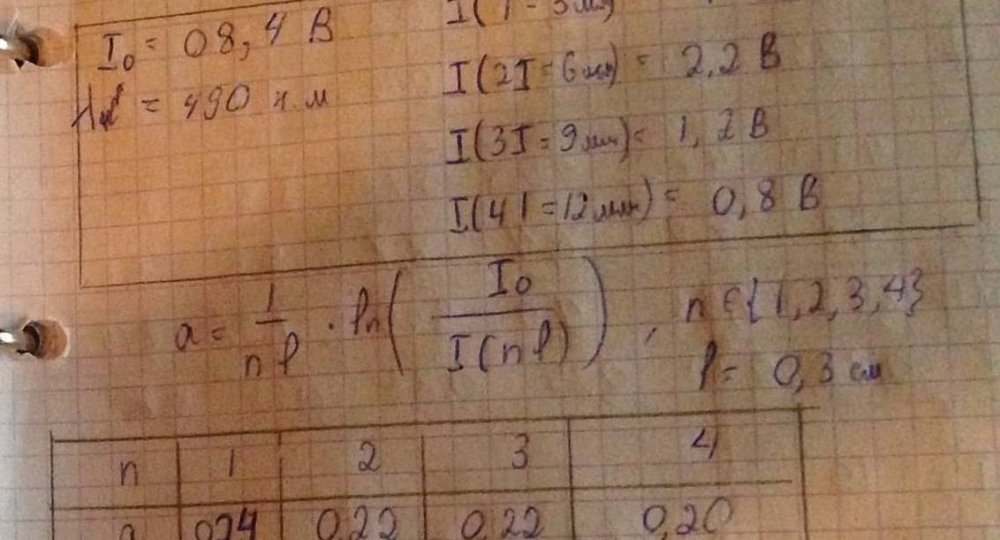 I₀ = 08,4 В
= 490 н.м
I(1 - 3мм)
I(2I = 6мм) = 2,2 В
I(3I = 9мм) = 1,2 В
I(4I = 12мм) = 0,8 В
a = 1/(nl) · ln(I₀/I(nl)), n ∈ {1,2,3,4}
l = 0,3 см
n 1 2 3 4
a 0,24 0,22 0,22 0,20